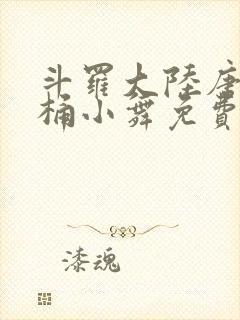 斗罗大陸唐
桶小舞免費
漆魂